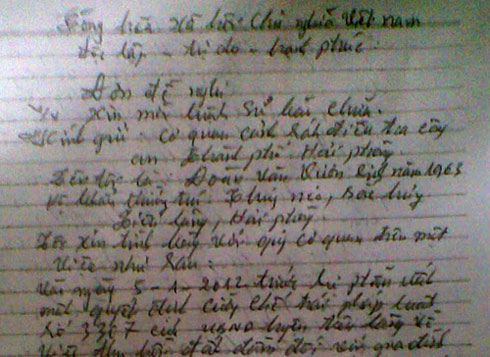 Cộng hòa xã hội Chủ nghĩa Việt nam
Độc lập - tự do - hạnh phúc.
Đơn đề nghị
V/v Xin mời luật sư bào chữa.
Kính gửi: Cơ quan cảnh sát điều tra công
an Thành phố Hải phòng
Tên tôi là: Đoàn Văn Vươn Sinh năm 1963
Hộ khẩu thường trú: Bắc Hưng
Tiên lãng, Hải phòng
Tôi xin trình bày với quý cơ quan điều một
việc như sau:
Vào ngày 5-1-2012 trước sự
một quyết định cưỡng chế trái pháp luật
số 3307 của UBND huyện tiên lãng về
việc thu hồi đất đầm gia đình